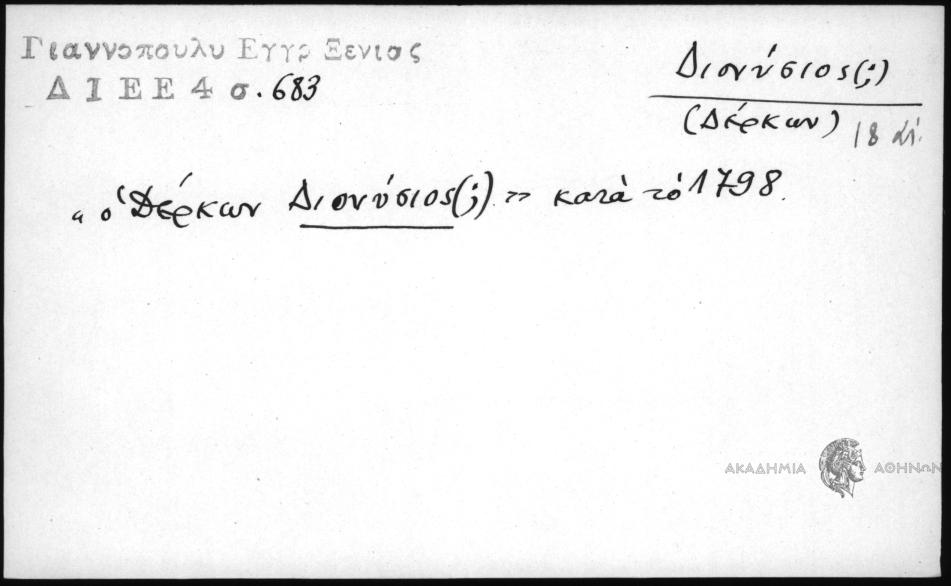 Γιαννοπουλυ Εγγρ Ξενιας
Δ Ι Ε Ε 4 σ. 683
Διονύσιος(;)
(Δέρκων) 18 αἰ.
„ ὁ Δέρκων Διονύσιος(;) » κατὰ τὸ 1798.
ΑΚΑΔΗΜΙΑ ΑΘΗΝΩΝ